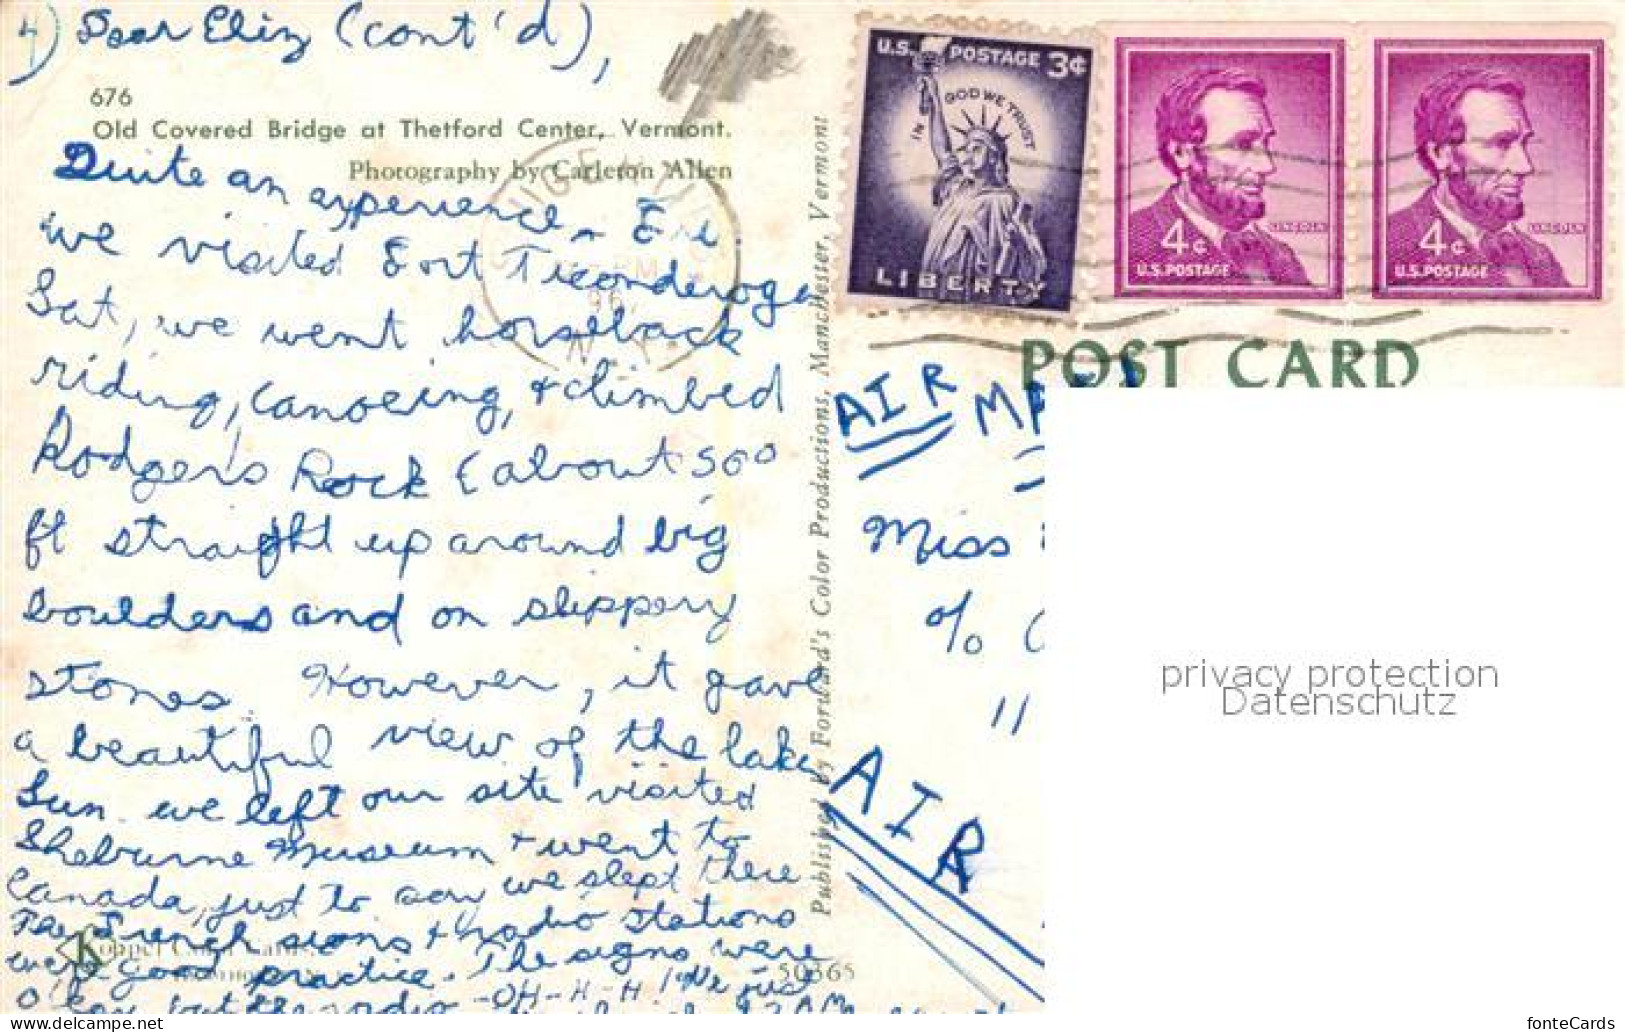 4) Dear Eliz (cont'd),
676
Old Covered Bridge at Thetford Center, Vermont.
Photography by Carleton Allen
Quite an experience - Fri
we visited Fort Ticonderoga
Sat, we went horseback
riding, canoeing, + climbed
Rodgers Rock (about 500
ft straight up around big
boulders and on slippery
stones. However, it gave
a beautiful view of the lake.
Sun. we left our site visited
Sheburne Museum + went to
Canada, just to say we slept there
The French signs + radio stations
were good practice. The signs were
okay, but the radio -OH-H-H! We just
Koppel Color Cards,
50365
Published by Forward's Color Productions, Manchester, Vermont
U.S. POSTAGE 3¢
IN GOD WE TRUST
LIBERTY
4¢
LINCOLN
U.S. POSTAGE
4¢
LINCOLN
U.S. POSTAGE
N.Y.
POST CARD
AIR
Miss
%
"
AIR
privacy protection
Datenschutz
https://www.delcampe.net
fonteCards